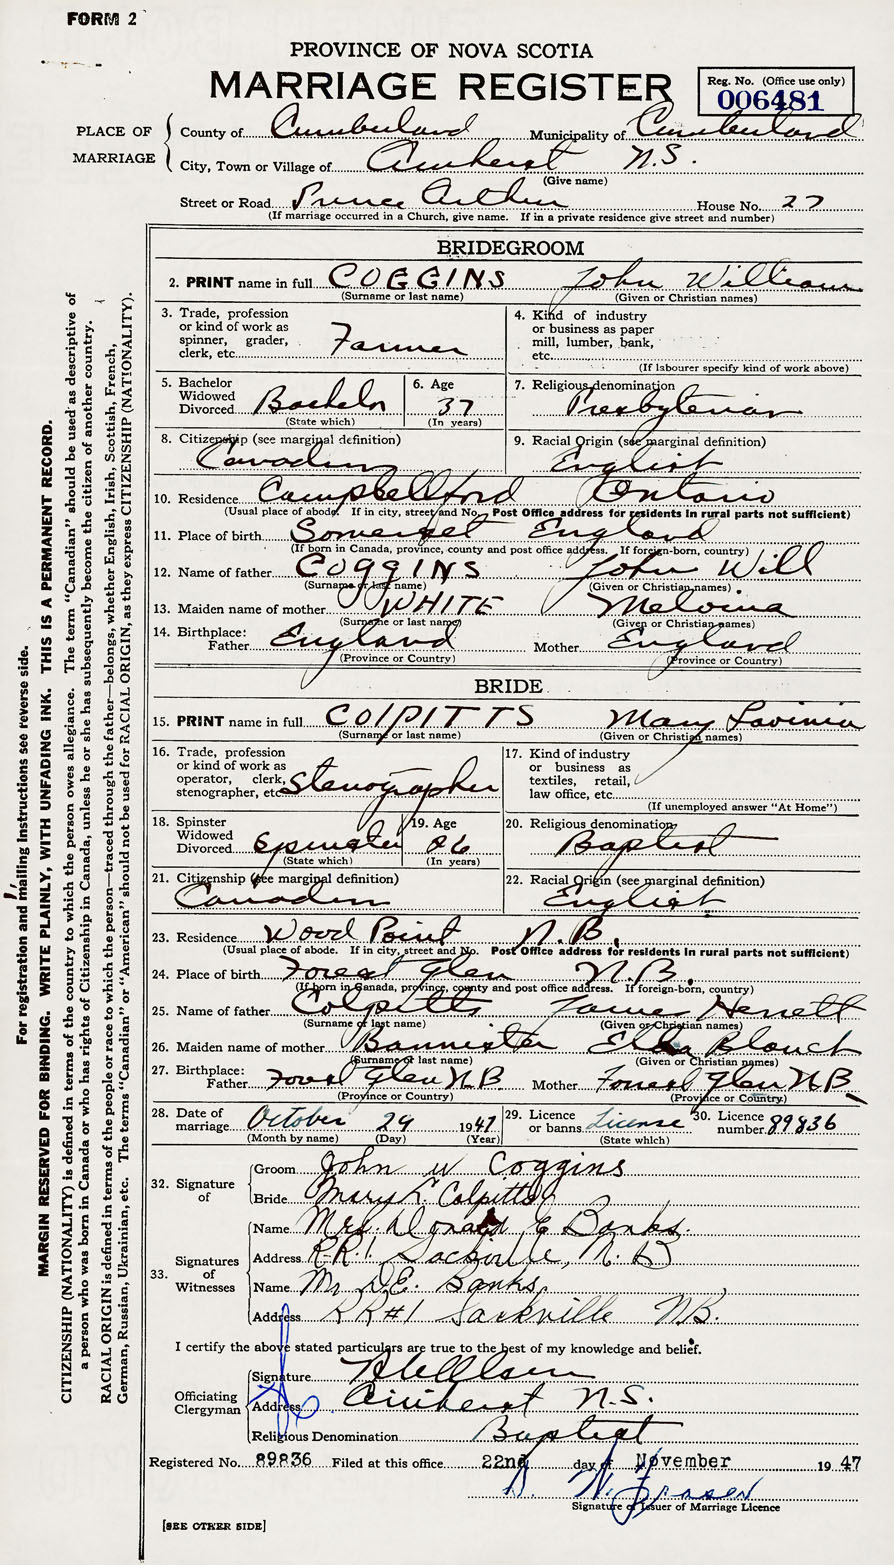 FORM 2
PROVINCE OF NOVA SCOTIA
MARRIAGE REGISTER
Reg. No. (Office use only)
006481
PLACE OF MARRIAGE
County of Cumberland Municipality of Cumberland
City, Town or Village of Amherst N.S.
(Give name)
Street or Road Prince Arthur House No. 27
(If marriage occurred in a Church, give name. If in a private residence give street and number)
BRIDEGROOM
2. PRINT name in full COGGINS John William
(Surname or last name) (Given or Christian names)
3. Trade, profession or kind of work as spinner, grader, clerk, etc. Farmer
4. Kind of industry or business as paper mill, lumber, bank, etc.
(If labourer specify kind of work above)
5. Bachelor Widowed Divorced Bachelor
(State which)
6. Age 37
(In years)
7. Religious denomination Presbyterian
8. Citizenship (see marginal definition) Canadian
9. Racial Origin (see marginal definition) English
10. Residence Campbellford Ontario
(Usual place of abode. If in city, street and No. Post Office address for residents in rural parts not sufficient)
11. Place of birth Somerset England
(If born in Canada, province, county and post office address. If foreign-born, country)
12. Name of father COGGINS John Will
(Surname or last name) (Given or Christian names)
13. Maiden name of mother WHITE Melvina
(Surname or last name) (Given or Christian names)
14. Birthplace: Father England Mother England
(Province or Country) (Province or Country)
BRIDE
15. PRINT name in full COLPITTS Mary Lavinia
(Surname or last name) (Given or Christian names)
16. Trade, profession or kind of work as operator, clerk, stenographer, etc. Stenographer
17. Kind of industry or business as textiles, retail, law office, etc.
(If unemployed answer "At Home")
18. Spinster Widowed Divorced Spinster
(State which)
19. Age 26
(In years)
20. Religious denomination Baptist
21. Citizenship (see marginal definition) Canadian
22. Racial Origin (see marginal definition) English
23. Residence Wood Point N.B.
(Usual place of abode. If in city, street and No. Post Office address for residents in rural parts not sufficient)
24. Place of birth Forest Glen N.B.
(If born in Canada, province, county and post office address. If foreign-born, country)
25. Name of father Colpitts James
(Surname or last name) (Given or Christian names)
26. Maiden name of mother Bannister Blanch
(Surname or last name) (Given or Christian names)
27. Birthplace: Father Forest Glen N.B. Mother Forest Glen N.B.
(Province or Country) (Province or Country)
28. Date of marriage October 29 1947
(Month by name) (Day) (Year)
29. Licence or banns License
(State which)
30. Licence number 89836
32. Signature of
Groom John W Coggins
Bride Mary L. Colpitts
33. Signatures of Witnesses
Name Mrs. Donald E Banks.
Address R.R.1. Sackville, N.B
Name Mr D.E. Banks
Address RR#1 Sackville NB.
I certify the above stated particulars are true to the best of my knowledge and belief.
Officiating Clergyman
Signature
Address Amherst N.S.
Religious Denomination Baptist
Registered No. 89836 Filed at this office 22nd day of November 1947
Signature of Issuer of Marriage Licence
[SEE OTHER SIDE]
For registration and mailing instructions see reverse side.
MARGIN RESERVED FOR BINDING. WRITE PLAINLY, WITH UNFADING INK. THIS IS A PERMANENT RECORD.
CITIZENSHIP (NATIONALITY) is defined in terms of the country to which the person owes allegiance. The term "Canadian" should be used as descriptive of
a person who was born in Canada or who has rights of Citizenship in Canada, unless he or she has subsequently become the citizen of another country.
RACIAL ORIGIN is defined in terms of the people or race to which the person—traced through the father—belongs, whether English, Irish, Scottish, French,
German, Russian, Ukrainian, etc. The terms "Canadian" or "American" should not be used for RACIAL ORIGIN, as they express CITIZENSHIP (NATIONALITY).